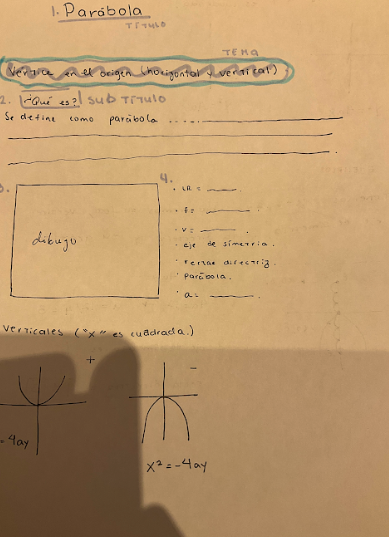 1. Parábola
TÍTULO
TEMA
Vértice en el origen (horizontal y vertical)
2. ¿Qué es? SUBTÍTULO
Se define como parábola .....
3.
dibujo
4.
· LR = ____.
· f = ____.
· v = ____.
· eje de simetria.
· rectas directriz.
· parábola.
· a = ____.
Verticales ("x" es cuadrada.)
+ −
= 4ay
x² = -4ay